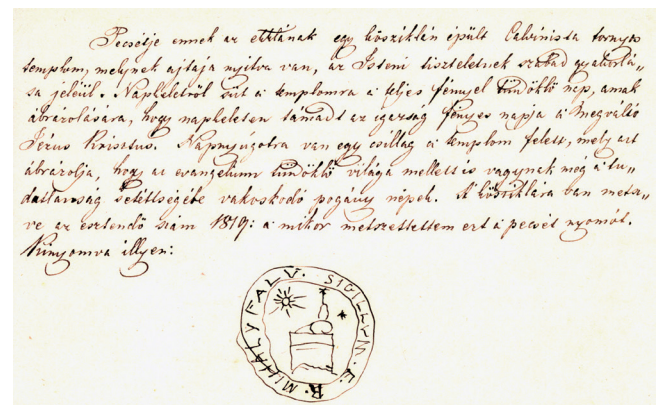 Pecsétje ennek az ekklának egy kősziklán épült Calvinista tornyos
templom, melynek ajtaja nyitva van, az Isteni tiszteletnek szabad gyakorlá„
sa jeléűl. Napkeletről süt a templomra a teljes fénnyel tündöklő nap, annak
ábrázolására, hogy napkeleten támadt az igazság fényes napja a Megváltó
Jézus Krisztus. Napnyúgotra van egy csillag a templom felett, mely azt
ábrázolja, hogy az evangelium tündöklő világa mellett is vagynak még a tu„
datlanság setéttségébe vakoskodó pogány népek. A kősziklára van metsz„
ve az esztendő szám 1819: a mikor metszettettem ezt a pecsét nyomót.
Kinyomva illyen:
SIGILLUM. E. R. MIHÁLYFALV.